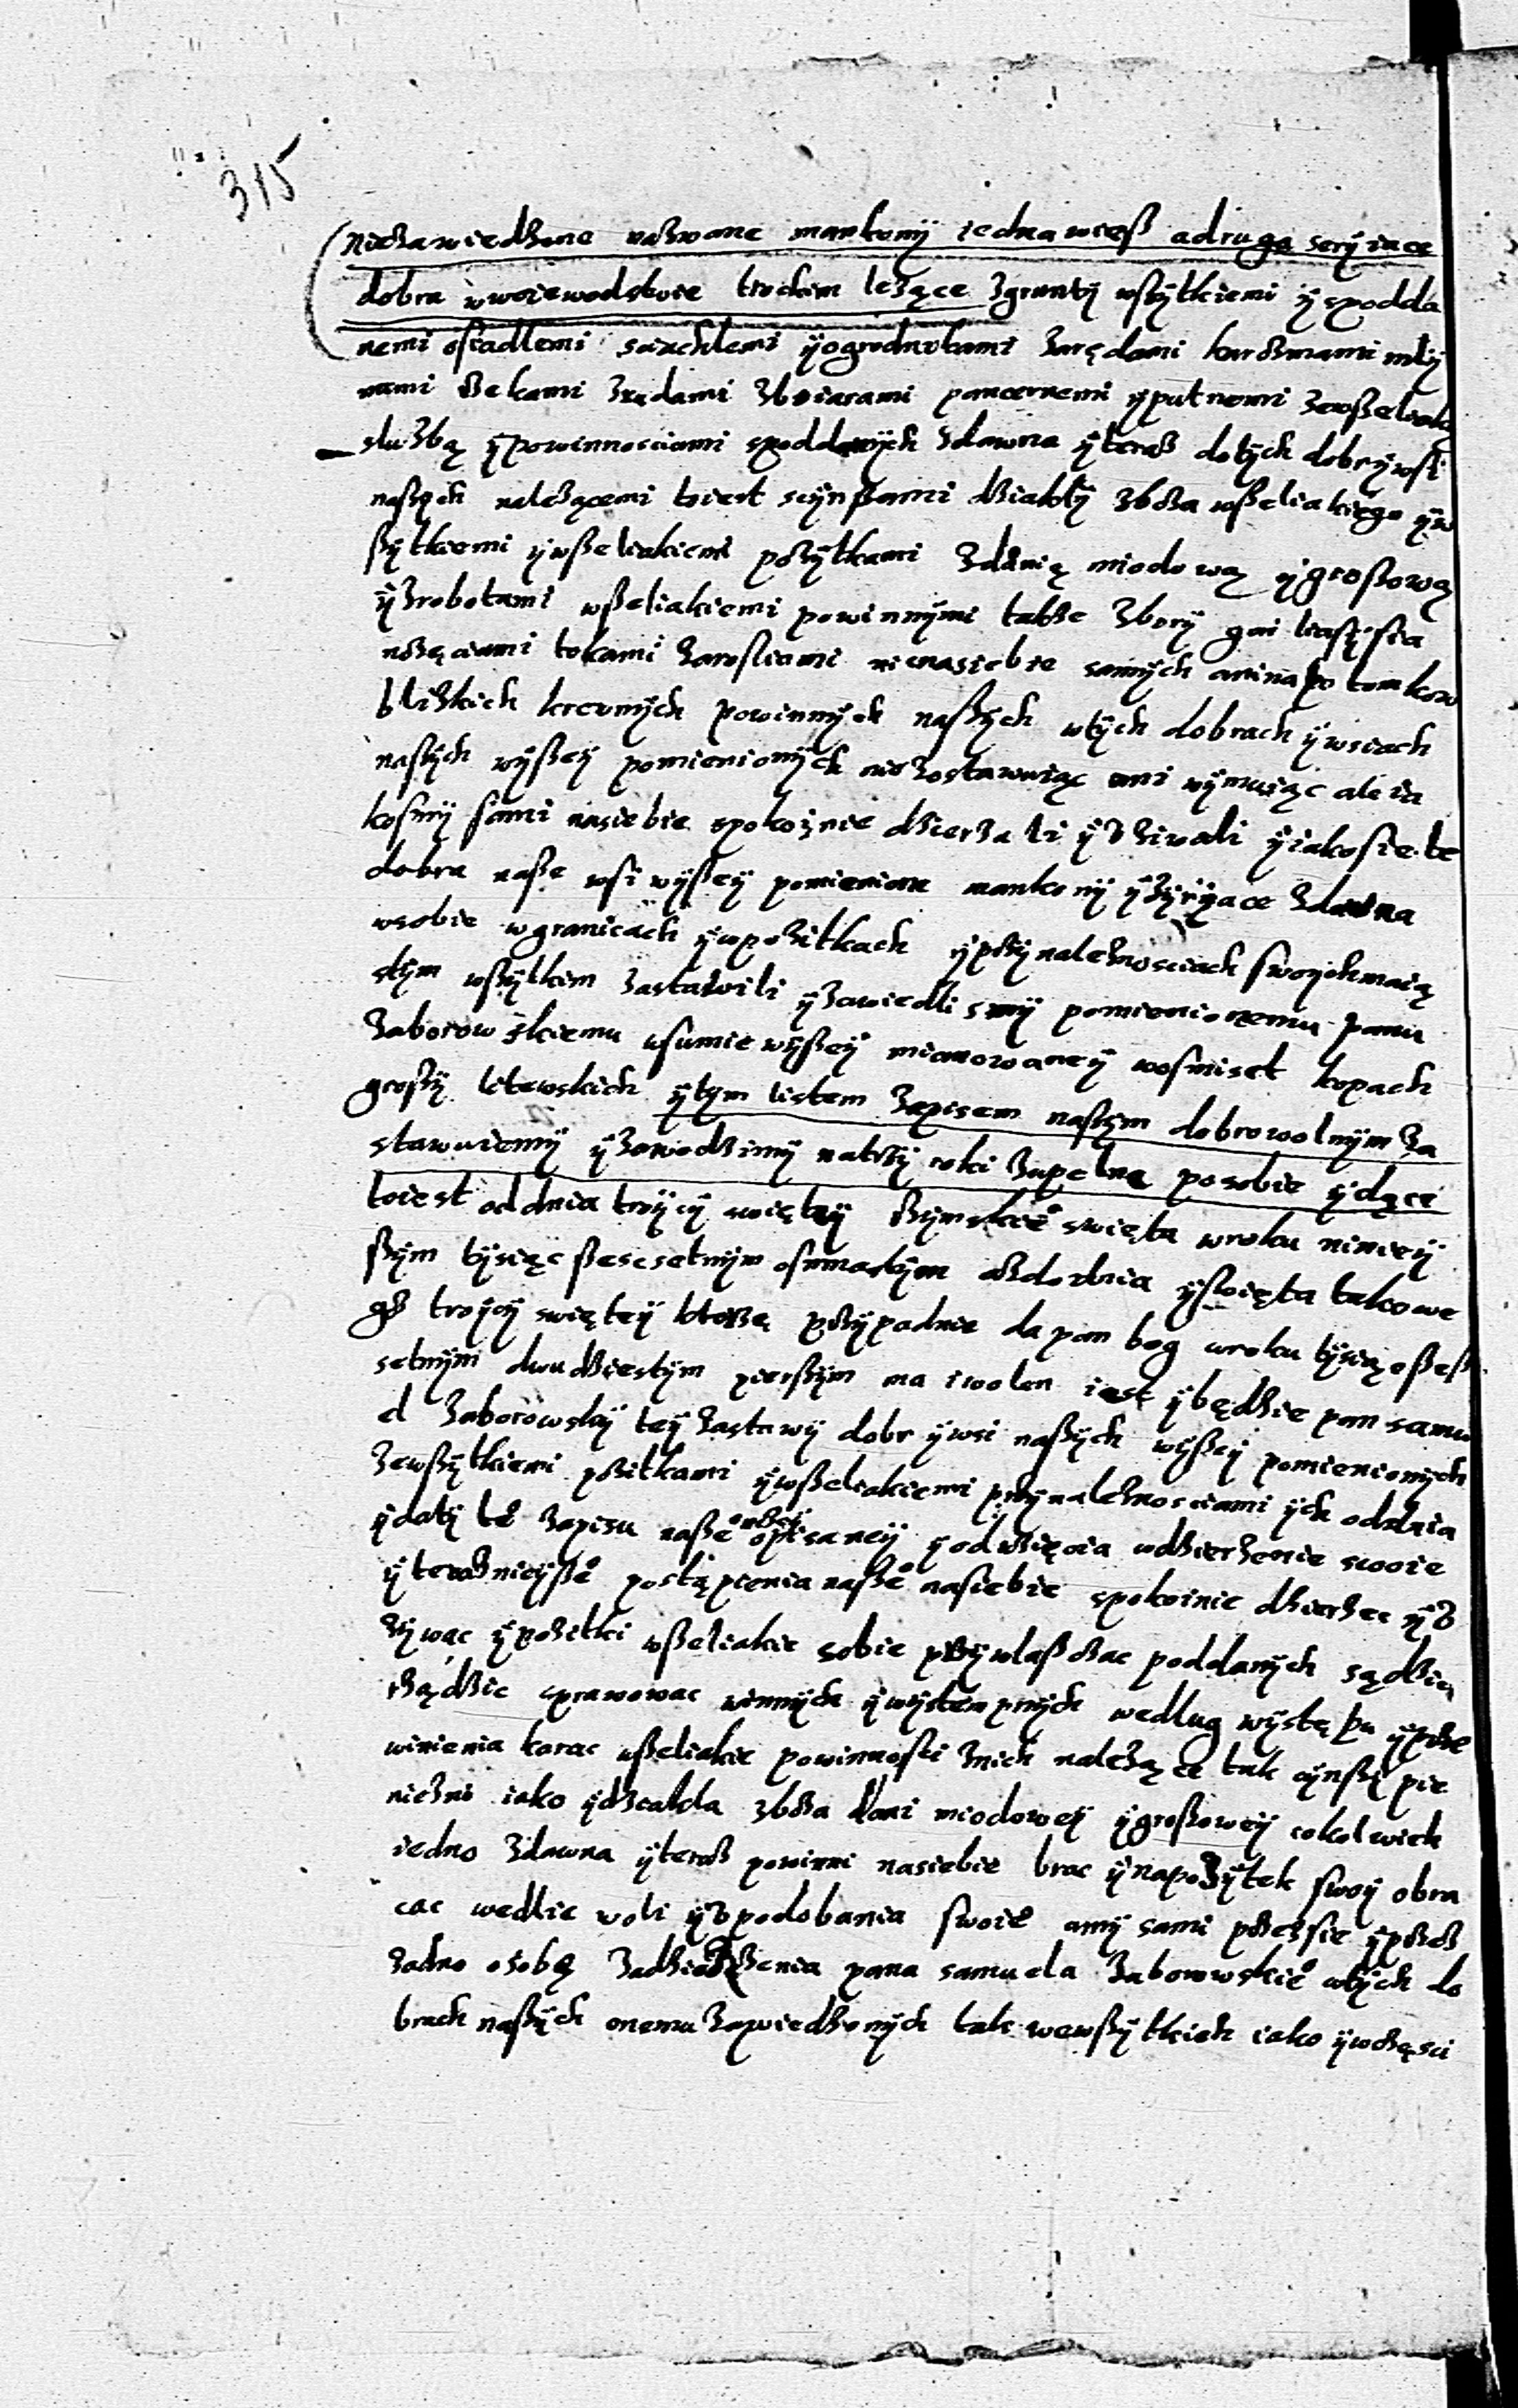 315
niezawiedzone nazwane mankuny iedna wieß a druga seryiace
dobra w woiewodstwie trockim leżące zgrunty wßytkiemi y spodda
nemi osiadlemi szlachtemi y ogrodnikami karczmami mly
nami zbоiarami pancernemi y putnemi
służbą y powinnosciami spoddanych zdawna y teraz do tych dobr y wsi
naßych należącemi toiest scynßami dziakły zboza wßeliakiego y w
ßytkiemi y wßeliakiemi pożytkami zdanią miodową y großową
y zrobotami wßeliakiemi powinnymi także zbory gai
tokami zaroslami nic na siebie samych ani na potomkow
blizkich krewnych powinnych naßych w tych dobrach y wsiach
naßych wyßey pomienionych nie zostawuiąc ani wymuiąc ale ia
kosmy sami na siebie spokoynie dzierzali y uziwali y iako sie te
dobra naße wsi wyßey pomienione mankuny y żyryace zdawna
w sobie w granicach y w pożitkach y przynależnosciach swoychmaią
stym wßytkim zastawili y zawiedli smy pomienionemu panu
Zaborowskiemu w sumie wyßey mianowaney w osmiset kopach
großy litewskich y tym listem zapisem naßym dobrowolnym za
stawuiemy y zawodzimy na trzy roki zupelną po sobie ydące
toiest od dnia troycy swiętey rzymskie° swięta w roku ninieiy
ßym tysiąc ßescsetnym osmnastym aż do dnia y swięta takowe
g° troycy swiętey ktore przypadnie da pan bog w roku tysiącßeß
setnym dwudziestym pierßym ma i wolen iest y będzie pan samu
el Zaborowsky tey zastawy dobr y wsi naßych wyßey pomienionych
ze wßytkiemi pożitkami y wßeliakiemi przynależnosciami ych od dnia
y daty te° zapisu naße° opisaney y od wzięcia w dzierzenie swoie
y teraznieyße° postąpienia naße° na siebie spokoinie dzierzec y u
żywac y pożitki wßeliakie sobie przywlaßczac poddanych sądzic
rządzic sprawowac winnych y wystempnych wedlug występu y prze
winienia karac wßeliakie powinnosci znich należące tak cynßy pie
nieżne iako y dziakla zboza dani miodowey y großowey cokolwiek
iedno zdawna y teraz powinni na siebie brac y na pożytek swoy obra
cac wedlie woli y upodobania swoie° a my sami przez sie y przez
żadne osobę zadzierżenia pana samuela Zaborowskie° w tych do
brach naßych onemu zawiedzonych tak we wßytkich iako y w częsci